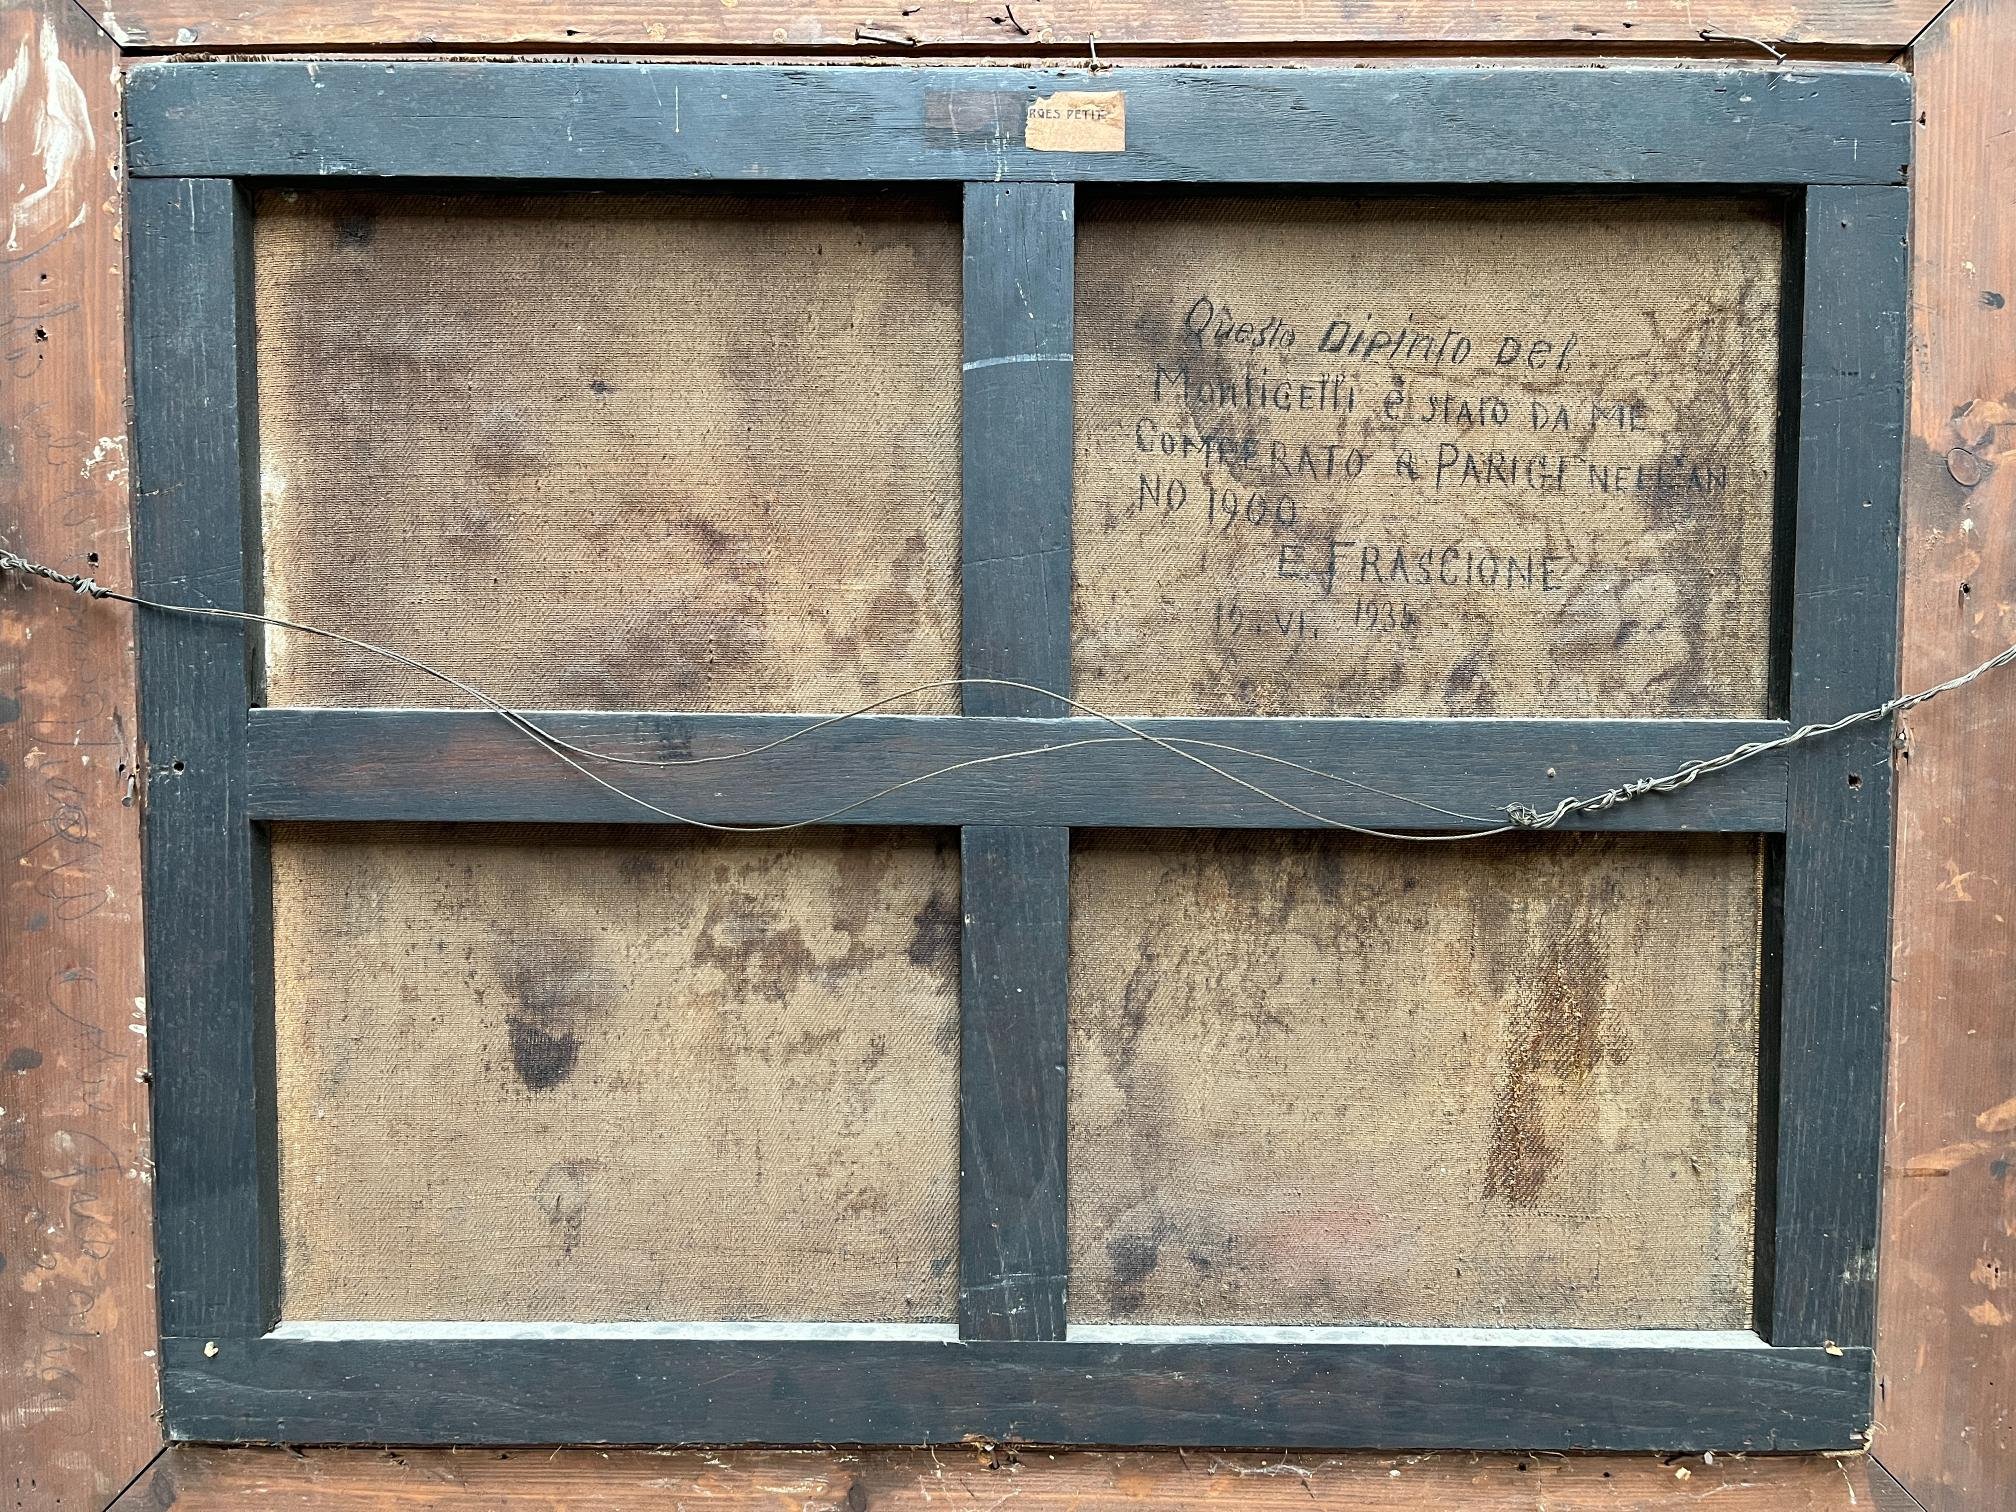 RGES PETIT
Questo Dipinto Del
Monticelli è stato da me
comperato a Parigi nell'an
no 1900
E. FRASCIONE
19. VI. 1934